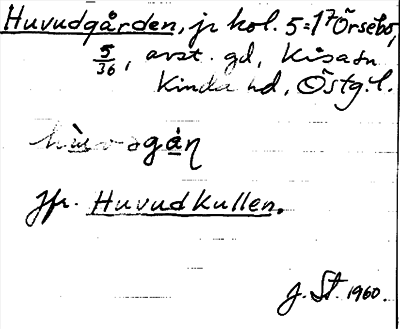 Huvudgården, jr kol. 5=17 Örsebo,
5/36, avst. gd, Kisa sn
Kinda hd, Östg.l.
jfr. Huvudkullen.
J. St. 1960.